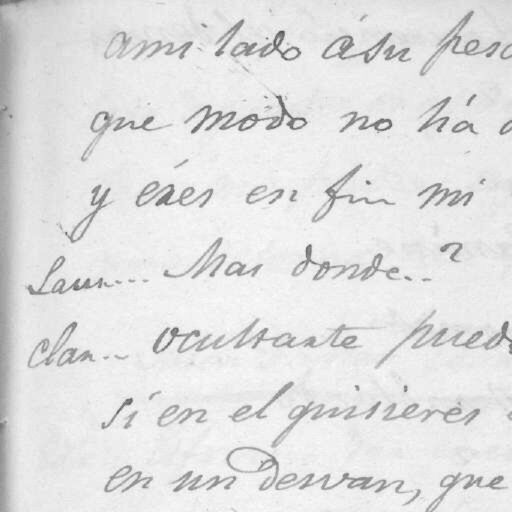 ami lado á su pes
que modo no há
y éres en fin mi
Laur... Mas donde..?
clar.. ocultarte pued
si en el quisieres
en un desvan, que